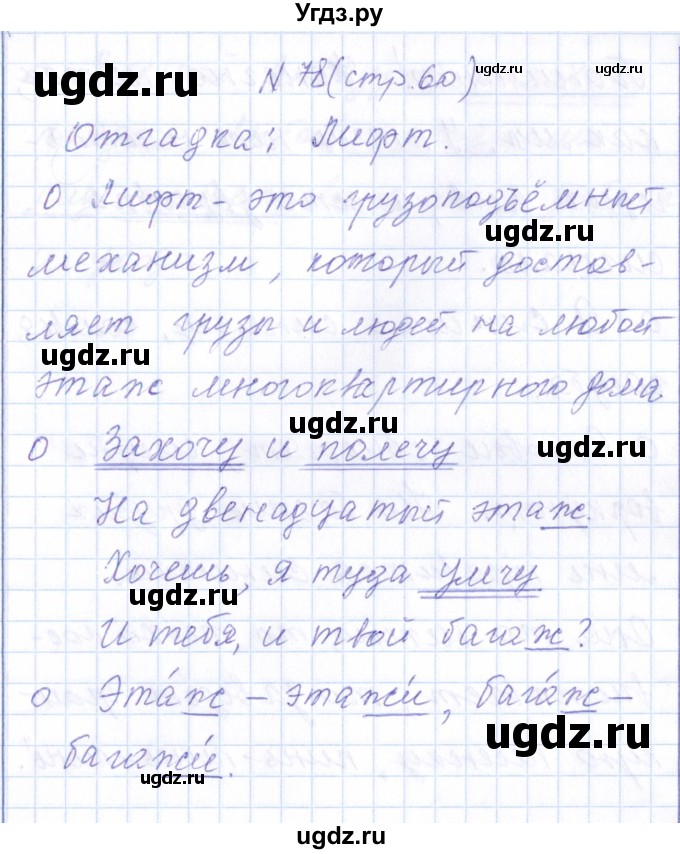 Угдз.ру
N 78 (стр. 60)
Отгадка: Лифт.
О Лифт - это грузоподъёмный
механизм, который достав-
ляет грузы и людей на любой
этаж многоквартирного дома
О Захочу и полечу
На двенадцатый этаж.
Хочешь, я туда умчу
И тебя, и твой багаж?
О Эта́ж - этажи́, бага́ж -
багажи́.
ugdz.ru
ugdz.ru
ugdz.ru
ugdz.ru
ugdz.ru
ugdz.ru
ugdz.ru
ugdz.ru
ugdz.ru
ugdz.ru
ugdz.ru
ugdz.ru